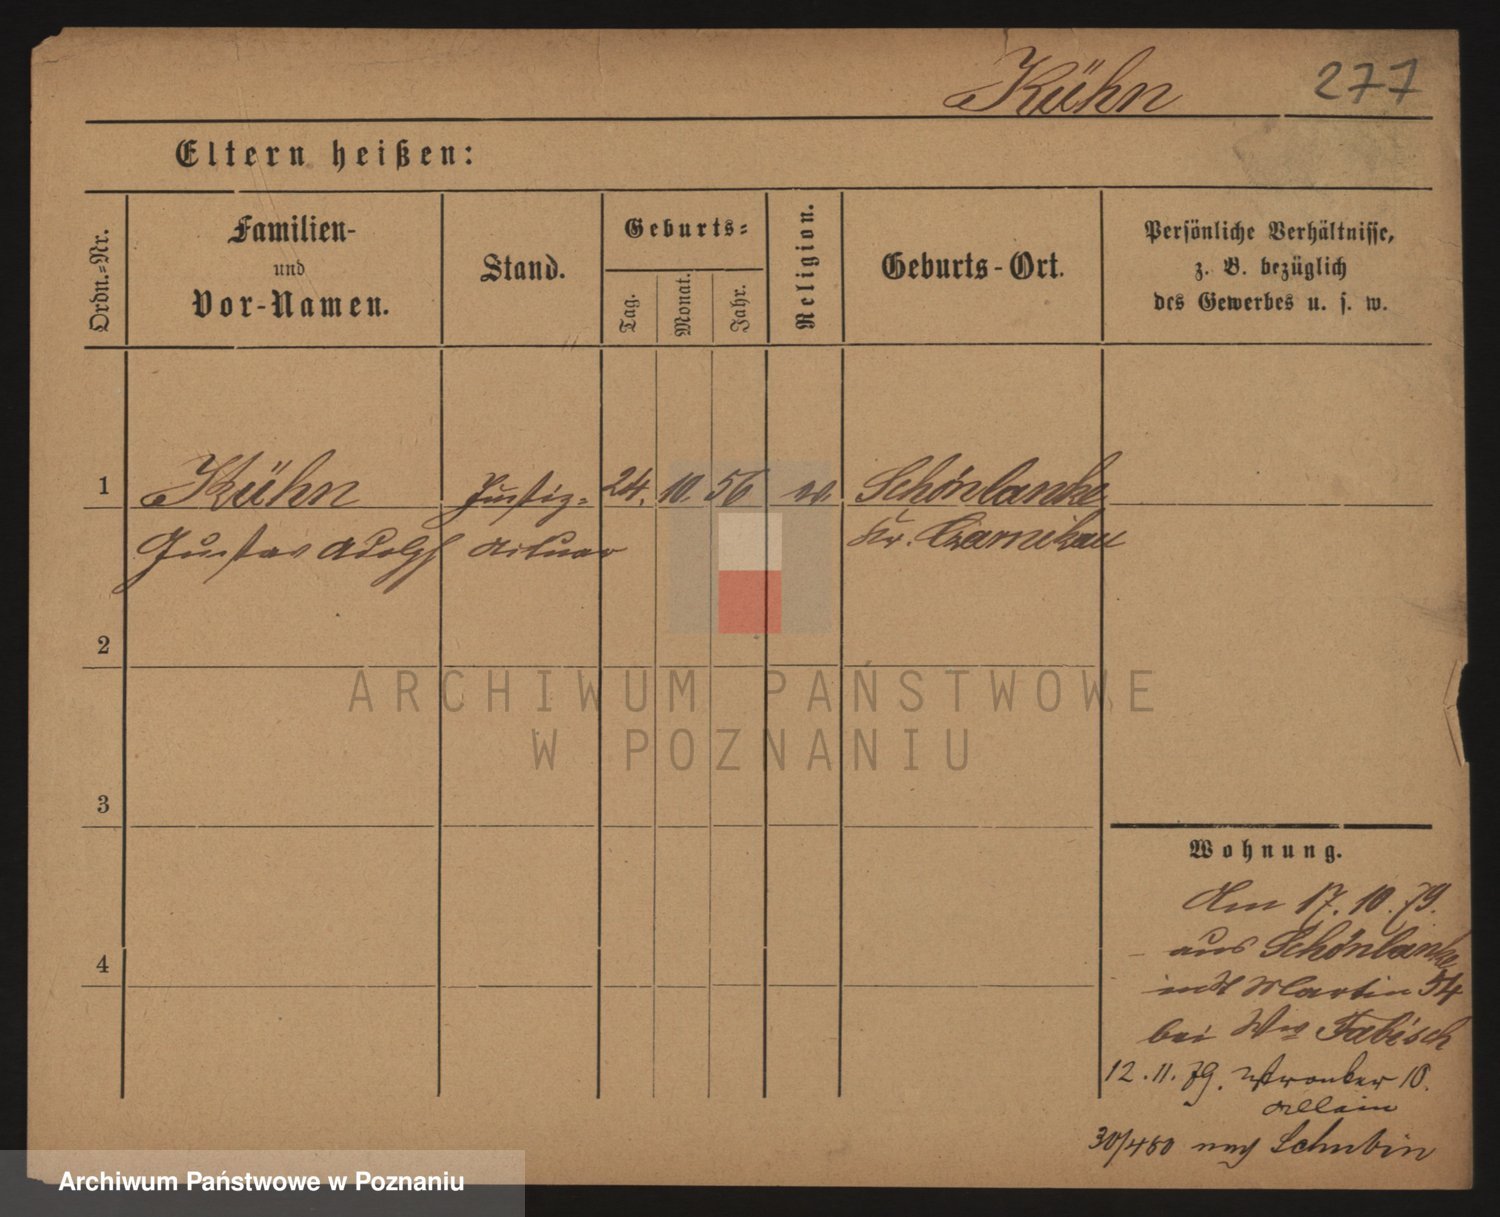 Kühn 277
Eltern heißen:
Ordn.-Nr.
Familien-
und
Vor-Namen.
Stand.
Geburts-
Tag.
Monat.
Jahr.
Religion.
Geburts-Ort.
Persönliche Verhältnisse,
z. B. bezüglich
des Gewerbes u. s. w.
1 Kühn Justiz- 24. 10. 56 ev Schönlanke
Gustav Adolph Actuar Kr. Czarnikau
2
ARCHIWUM PAŃSTWOWE
W POZNANIU
3
4
Wohnung.
Am 17. 10. 79.
aus Schönlanke
in St Martin 54
bei Wwe Fabisch
12. 11. 79. Wronker 10.
allein
30/4 80 nach Schubin
Archiwum Państwowe w Poznaniu